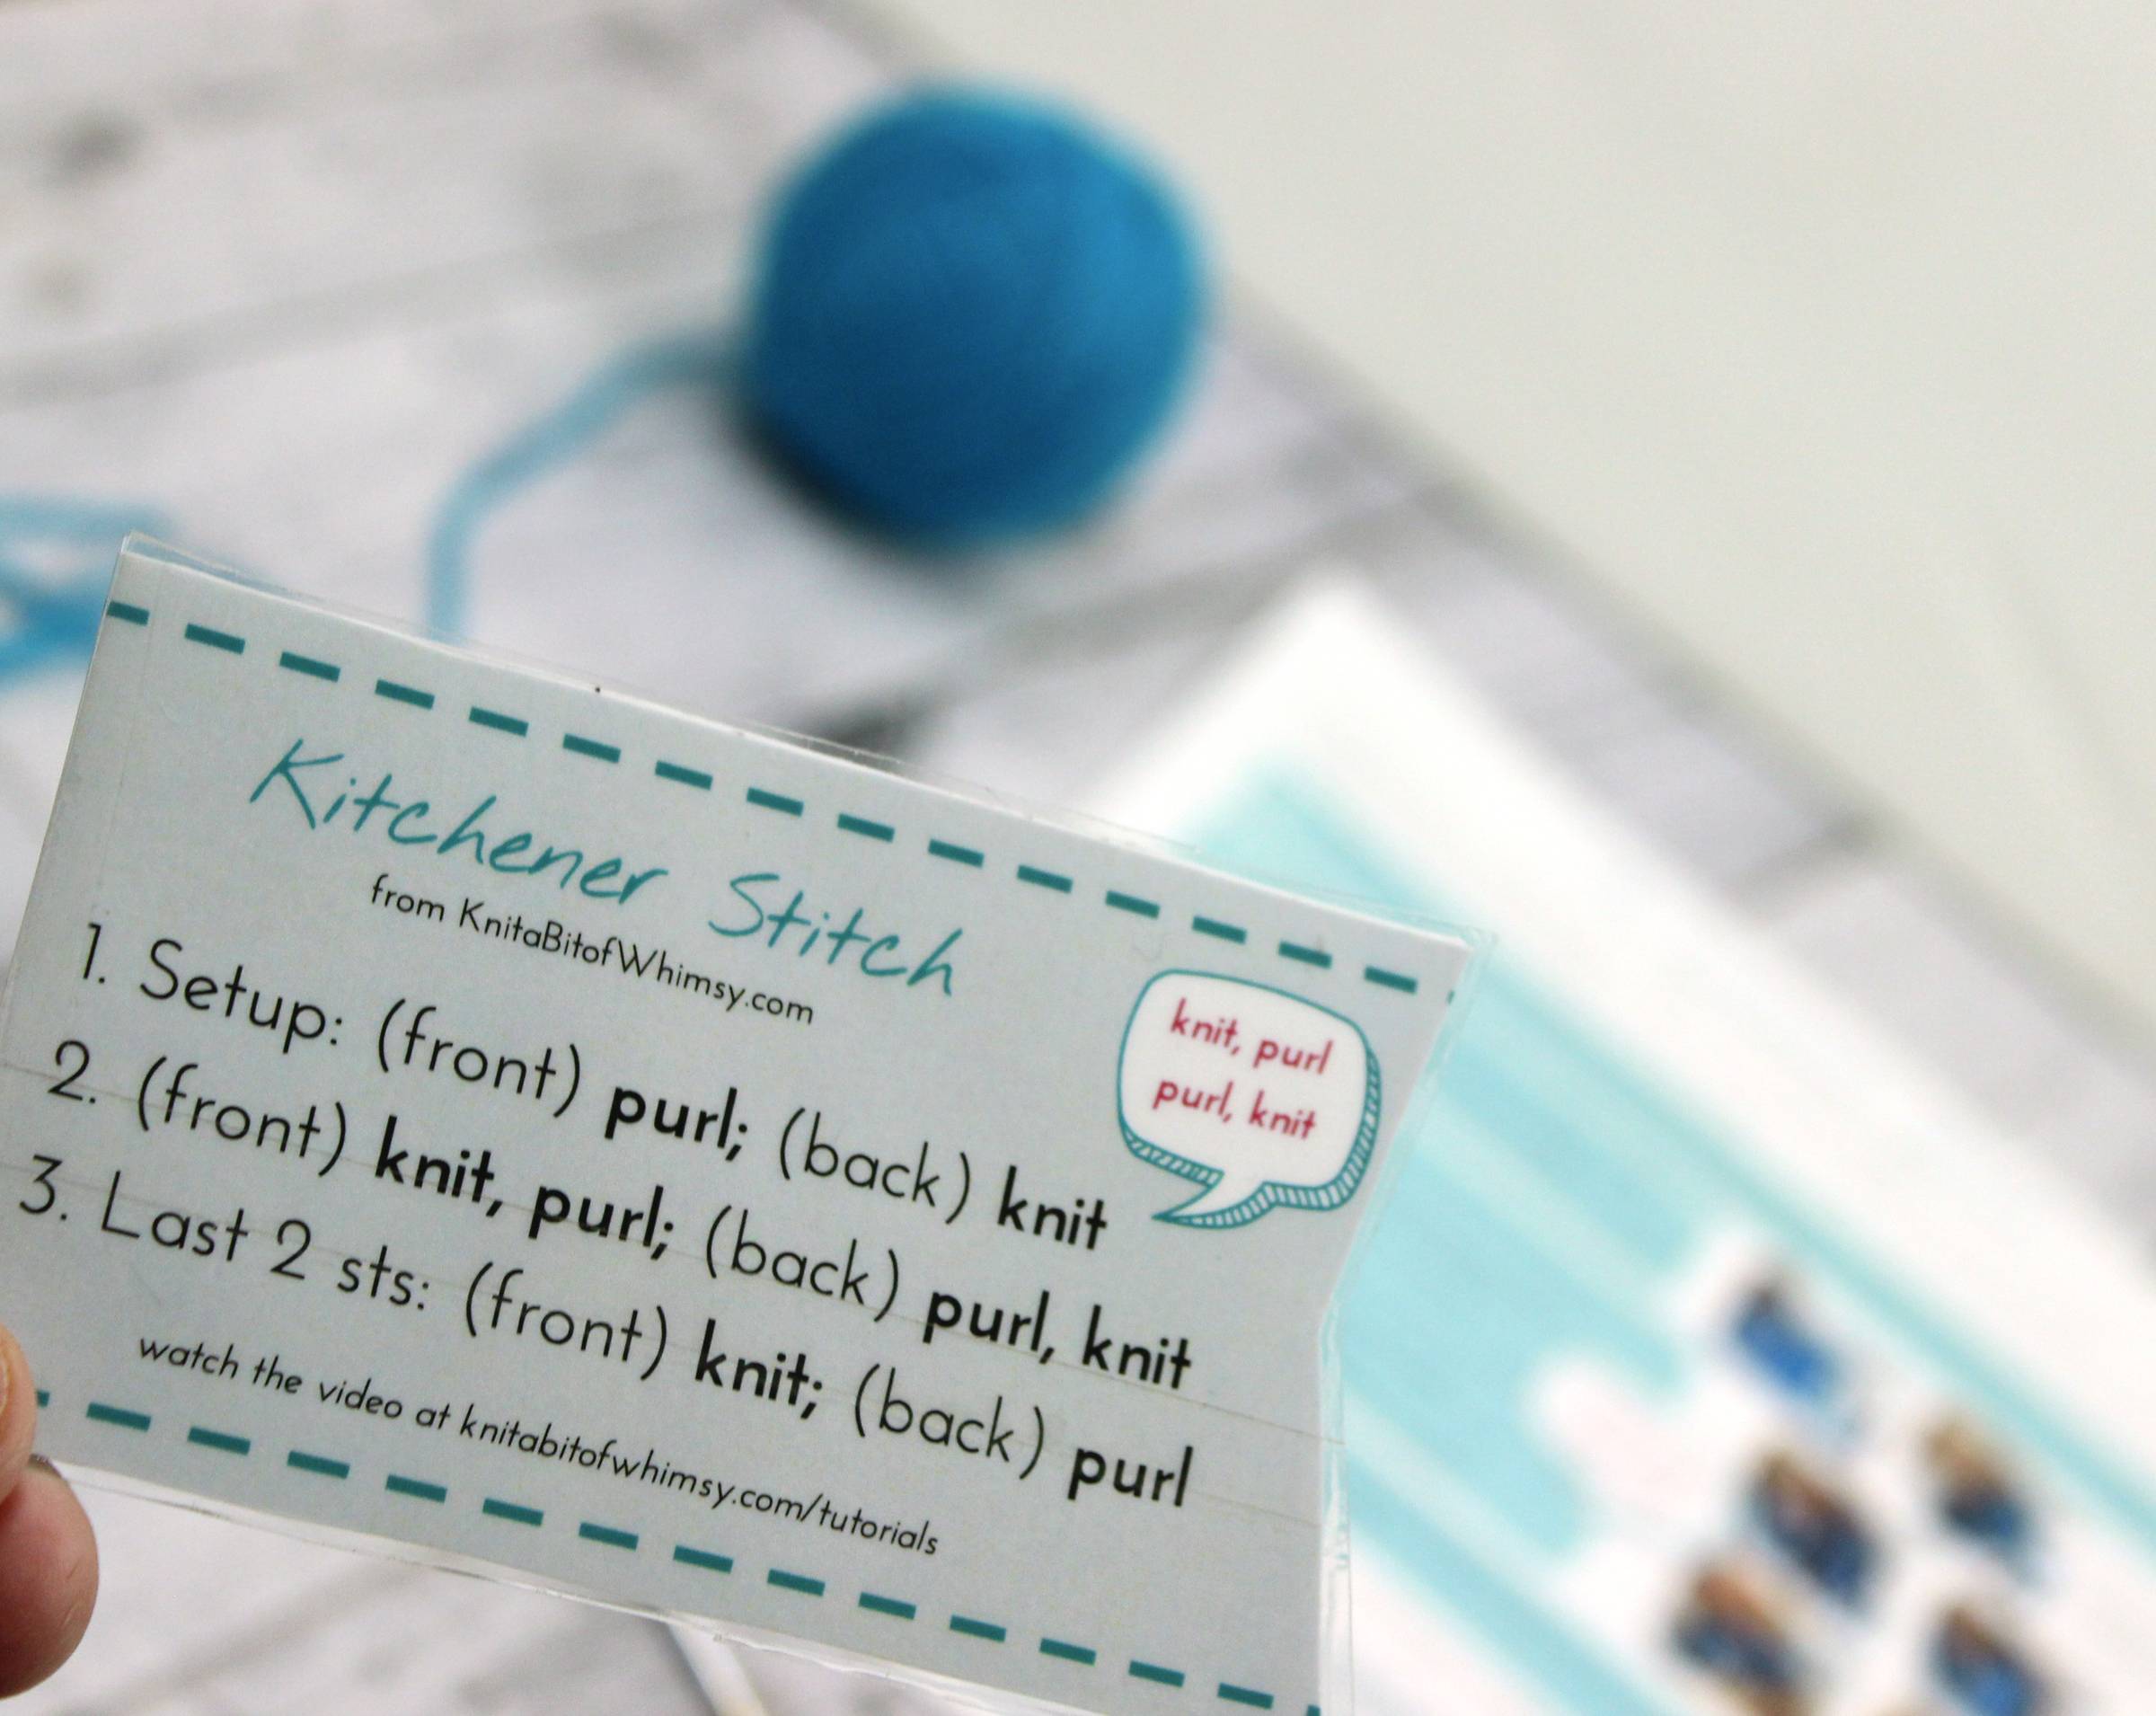 Kitchener Stitch
from KnitaBitofWhimsy.com
knit, purl
purl, knit
1. Setup: (front) purl; (back) knit
2. (front) knit, purl; (back) purl, knit
3. Last 2 sts: (front) knit; (back) purl
watch the video at knitabitofwhimsy.com/tutorials